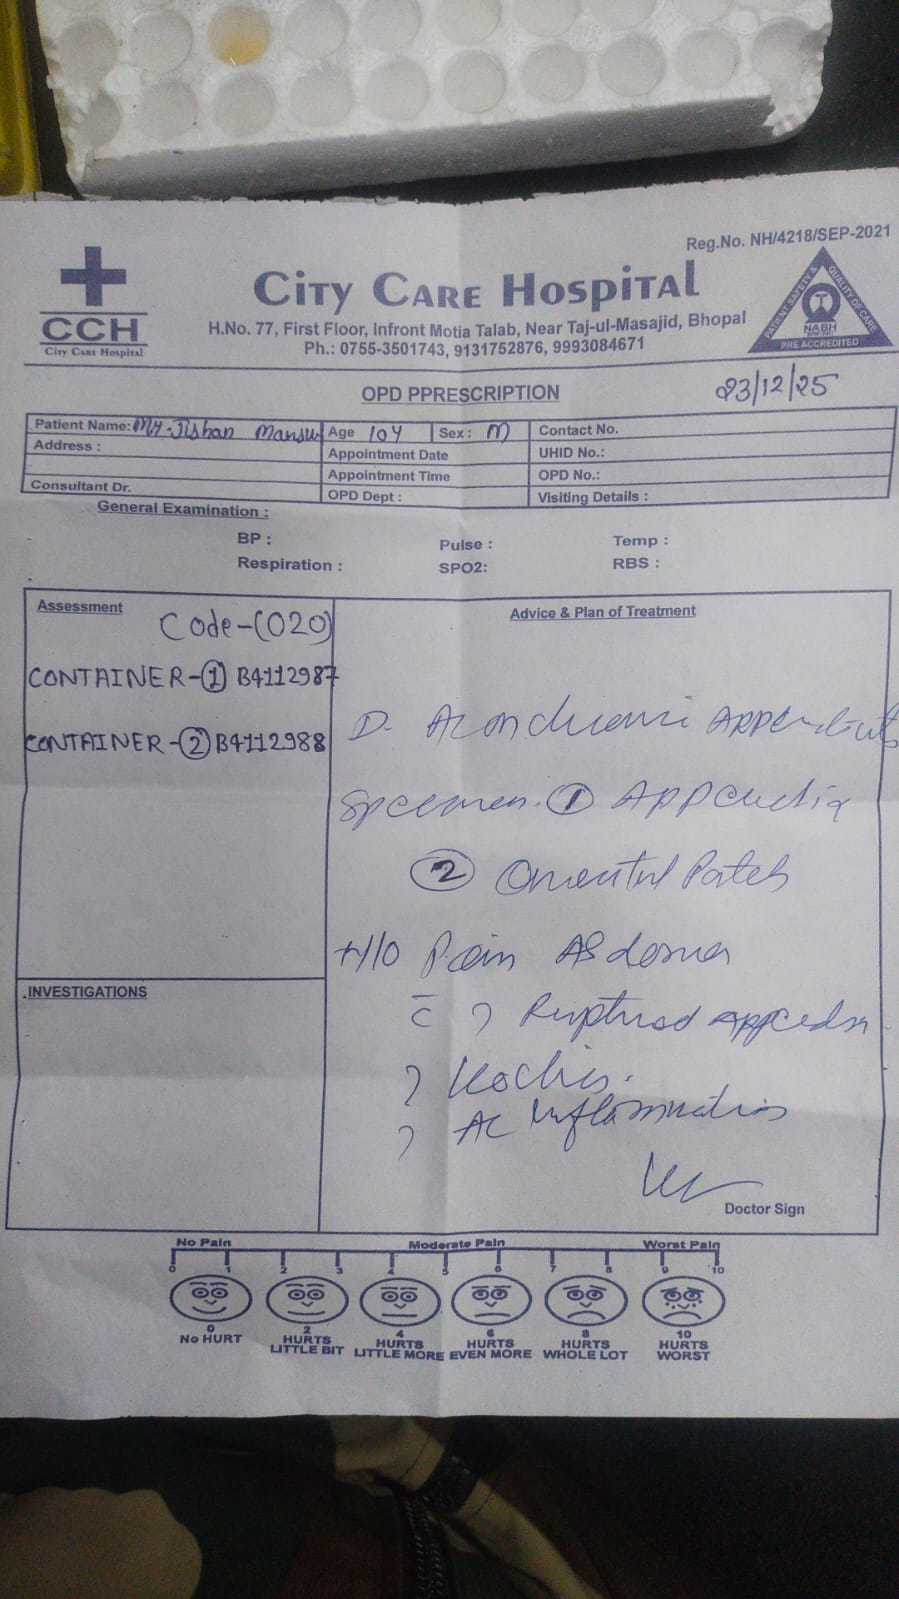 Reg.No. NH/4218/SEP-2021
CCH
City Care Hospital
City Care Hospital
H.No. 77, First Floor, Infront Motia Talab, Near Taj-ul-Masajid, Bhopal
Ph.: 0755-3501743, 9131752876, 9993084671
PATIENT SAFETY & QUALITY OF CARE
NABH
PRE ACCREDITED
OPD PPRESCRIPTION
23/12/25
Patient Name: Mr. Jishan Age 10Y Sex : M Contact No.
Address : Appointment Date UHID No.:
Appointment Time OPD No.:
Consultant Dr. OPD Dept : Visiting Details :
General Examination :
BP : Pulse : Temp :
Respiration : SPO2: RBS :
Assessment
Code-(020)
CONTAINER-① B4112987
CONTAINER-② B4112988
INVESTIGATIONS
Advice & Plan of Treatment
D. Ac on chronic Appendicitis
Specimen. ① Appendix
② Omental Patch
H/O Pain Abdomen
c̄ ? Ruptured appendix
? Koch's.
? Ac Inflammation
Doctor Sign
No Pain Moderate Pain Worst Pain
0 1 2 3 4 5 6 7 8 9 10
0 2 4 6 8 10
No HURT HURTS LITTLE BIT HURTS LITTLE MORE HURTS EVEN MORE HURTS WHOLE LOT HURTS WORST